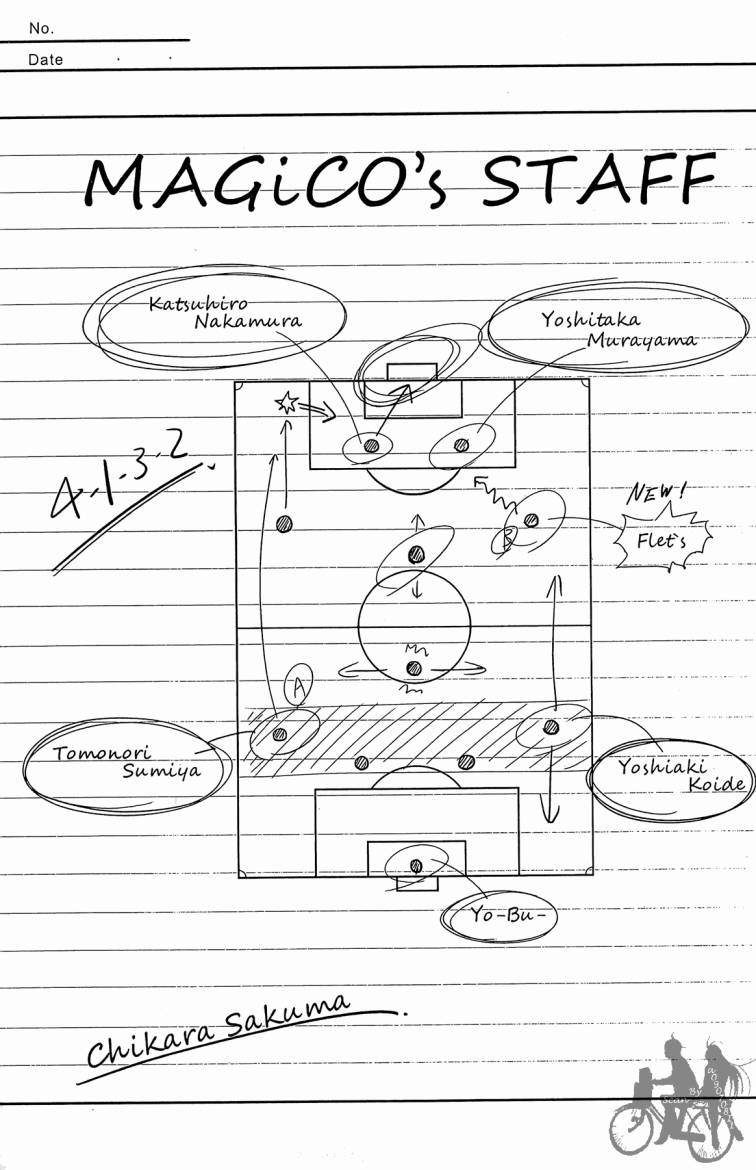 No.
Date
MAGiCO's STAFF
Katsuhiro
Nakamura
Yoshitaka
Murayama
4-1-3-2
NEW!
Flet's
B
A
Tomonori
Sumiya
Yoshiaki
Koide
Yo-Bu-
Chikara Sakuma.
Scan By